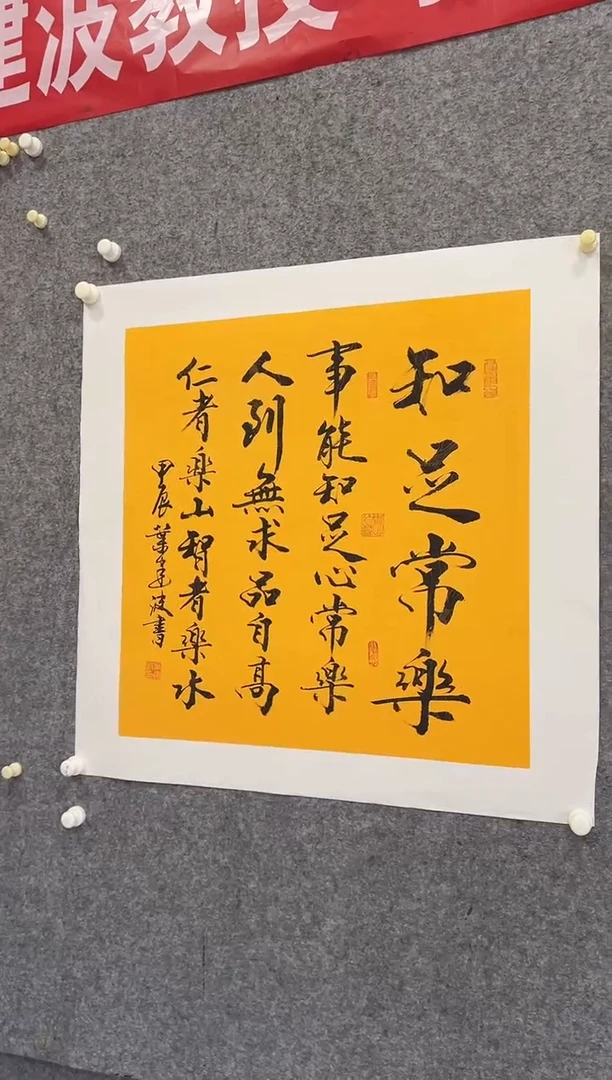 建波教授
知足常樂
事能知足心常樂
人到無求品自高
仁者樂山智者樂水
甲辰葉建波書